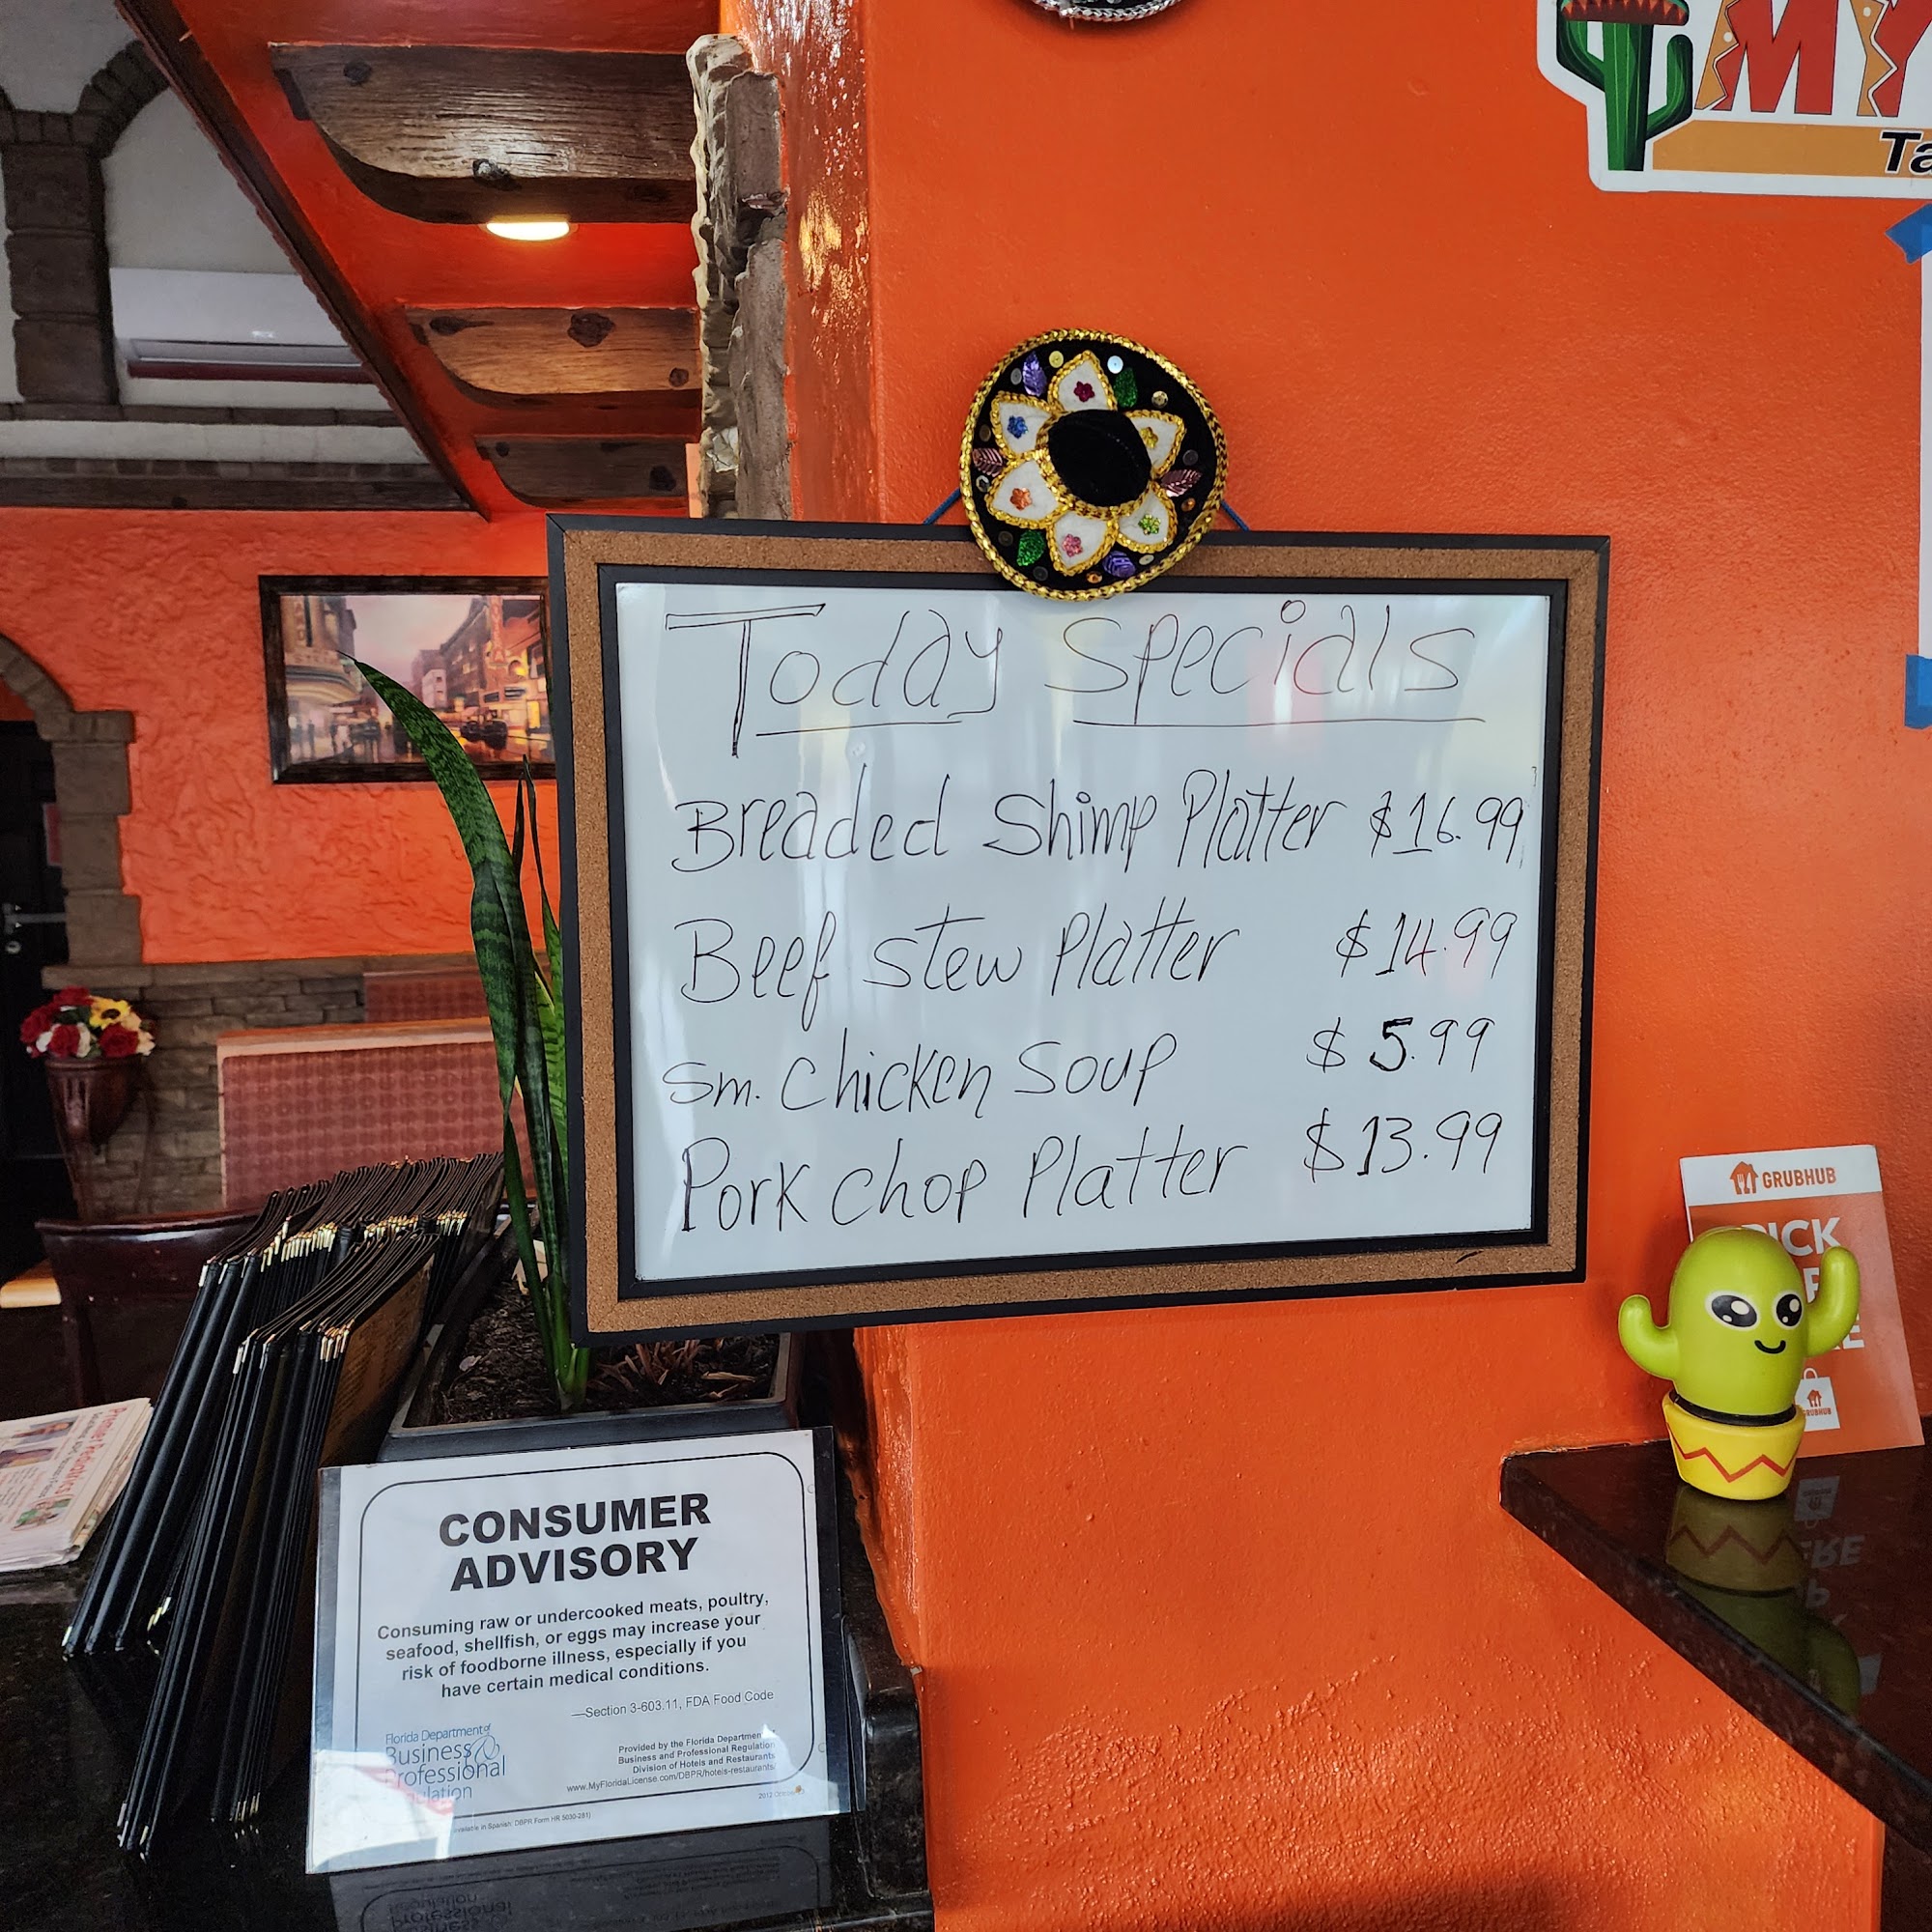 MY
Ta
Today Specials
Breaded Shimp Platter $16.99
Beef Stew Platter $14.99
Sm. Chicken Soup $5.99
Pork Chop Platter $13.99
GRUBHUB
PICK
GRUBHUB
CONSUMER
ADVISORY
Consuming raw or undercooked meats, poultry,
seafood, shellfish, or eggs may increase your
risk of foodborne illness, especially if you
have certain medical conditions.
—Section 3-603.11, FDA Food Code
Florida Department of
Business
Professional
Provided by the Florida Department
Business and Professional Regulation
Division of Hotels and Restaurants
www.MyFloridaLicense.com/DBPR/hotels-restaurants/
available in Spanish: DBPR Form HR 5030-281)